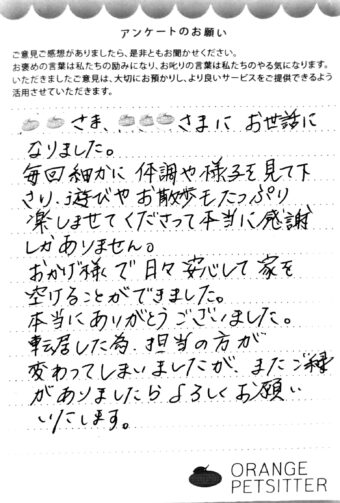 アンケートのお願い
ご意見ご感想がありましたら、是非ともお聞かせください。
お褒めの言葉は私たちの励みになり、お叱りの言葉は私たちのやる気になります。
いただきましたご意見は、大切にお預かりし、より良いサービスをご提供できるよう
活用させていただきます。
さま、さまに お世話に
なりました。
毎回細かに 体調や様子を見て下
さり、遊びやお散歩もたっぷり
楽しませてくださって本当に感謝
しかありません。
おかげ様で日々安心して家を
空けることができました。
本当にありがとうございました。
転居した為、担当の方が
変わってしまいましたが、またご縁
がありましたらよろしくお願い
いたします。
ORANGE
PETSITTER